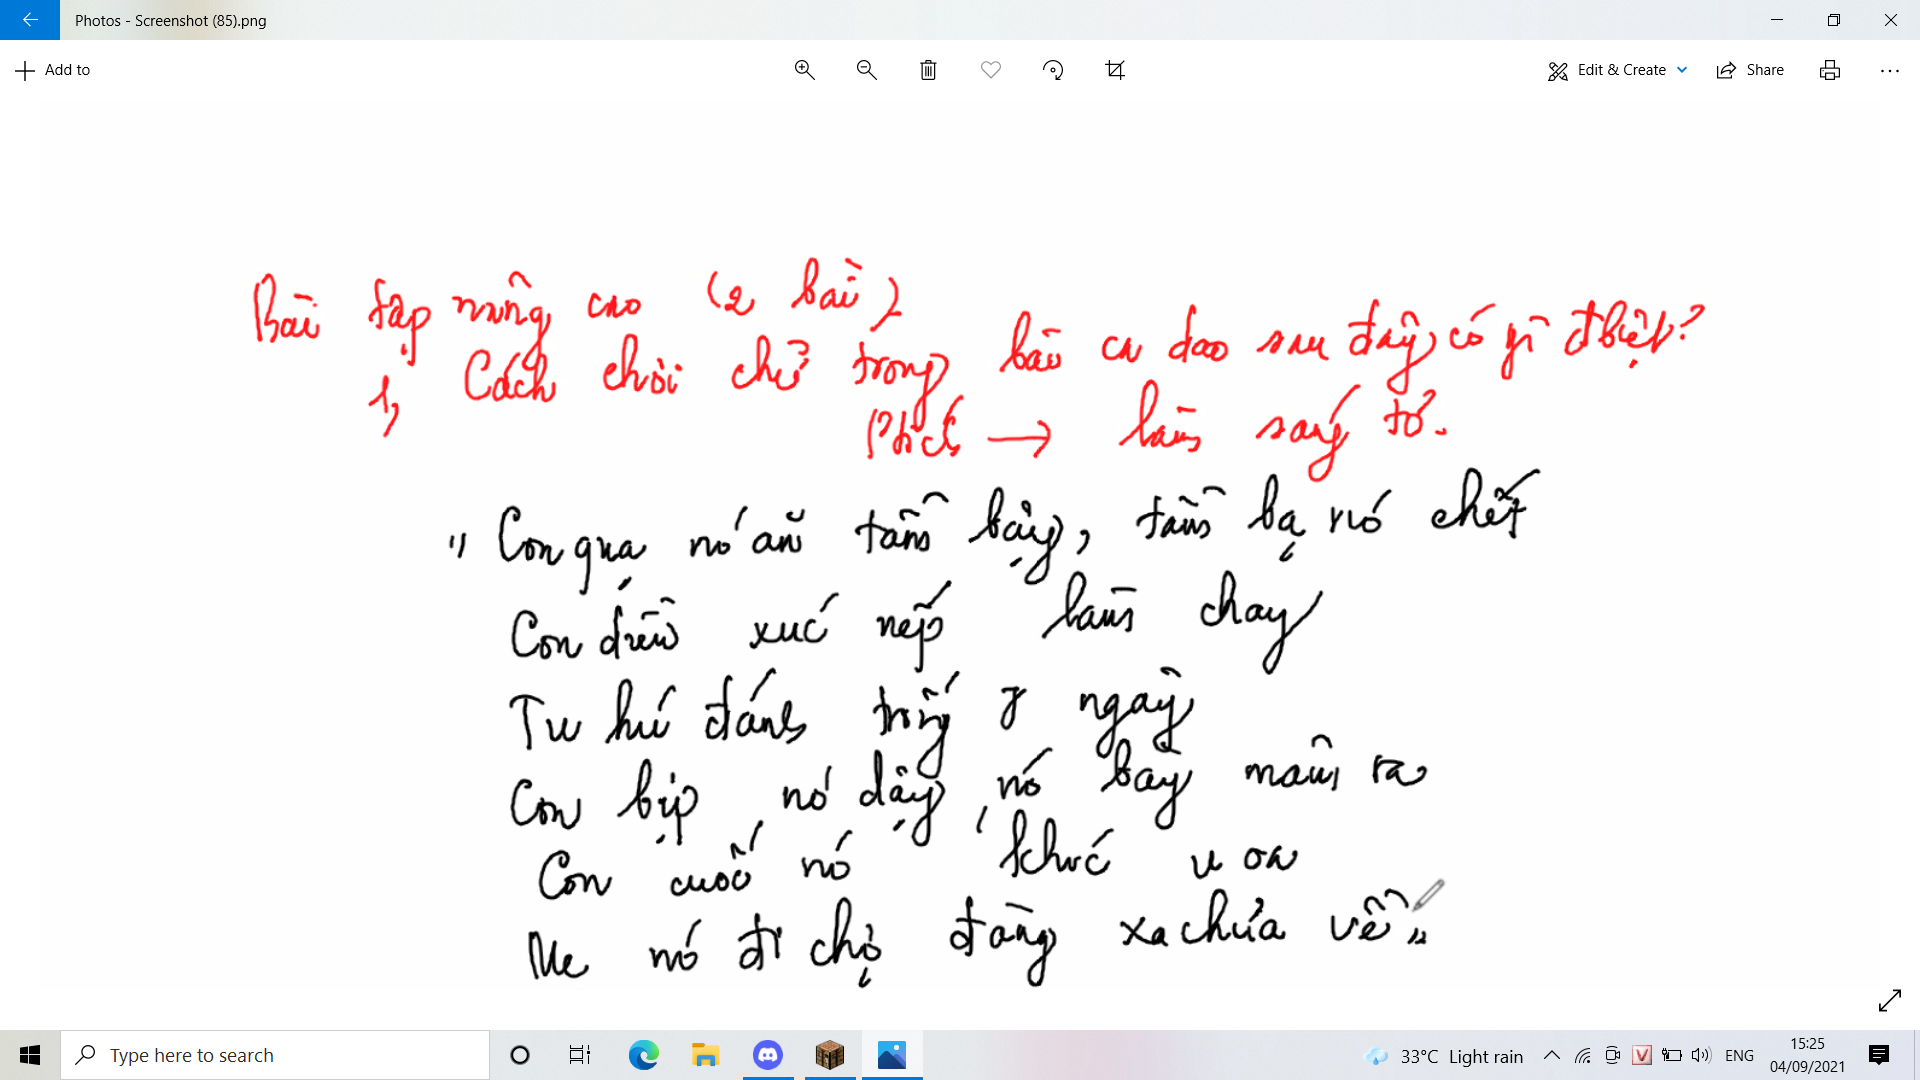 Photos - Screenshot (85).png
Add to
Edit & Create
Share
Bài tập nâng cao (2 bài)
1, Cách chơi chữ trong bài ca dao sau đây có gì đbiệt?
Phtích → làm sáng tỏ.
"Con quạ nó ăn tầm bậy, tầm bạ nó chết
Con diều xúc nếp làm chay
Tu hú đánh trống 7 ngày
Con bịp nó dậy, nó bày mâm ra
Con cuốc nó khóc u oa
Mẹ nó đi chợ đàng xa chửa về"
Type here to search
33°C Light rain
ENG
15:25
04/09/2021